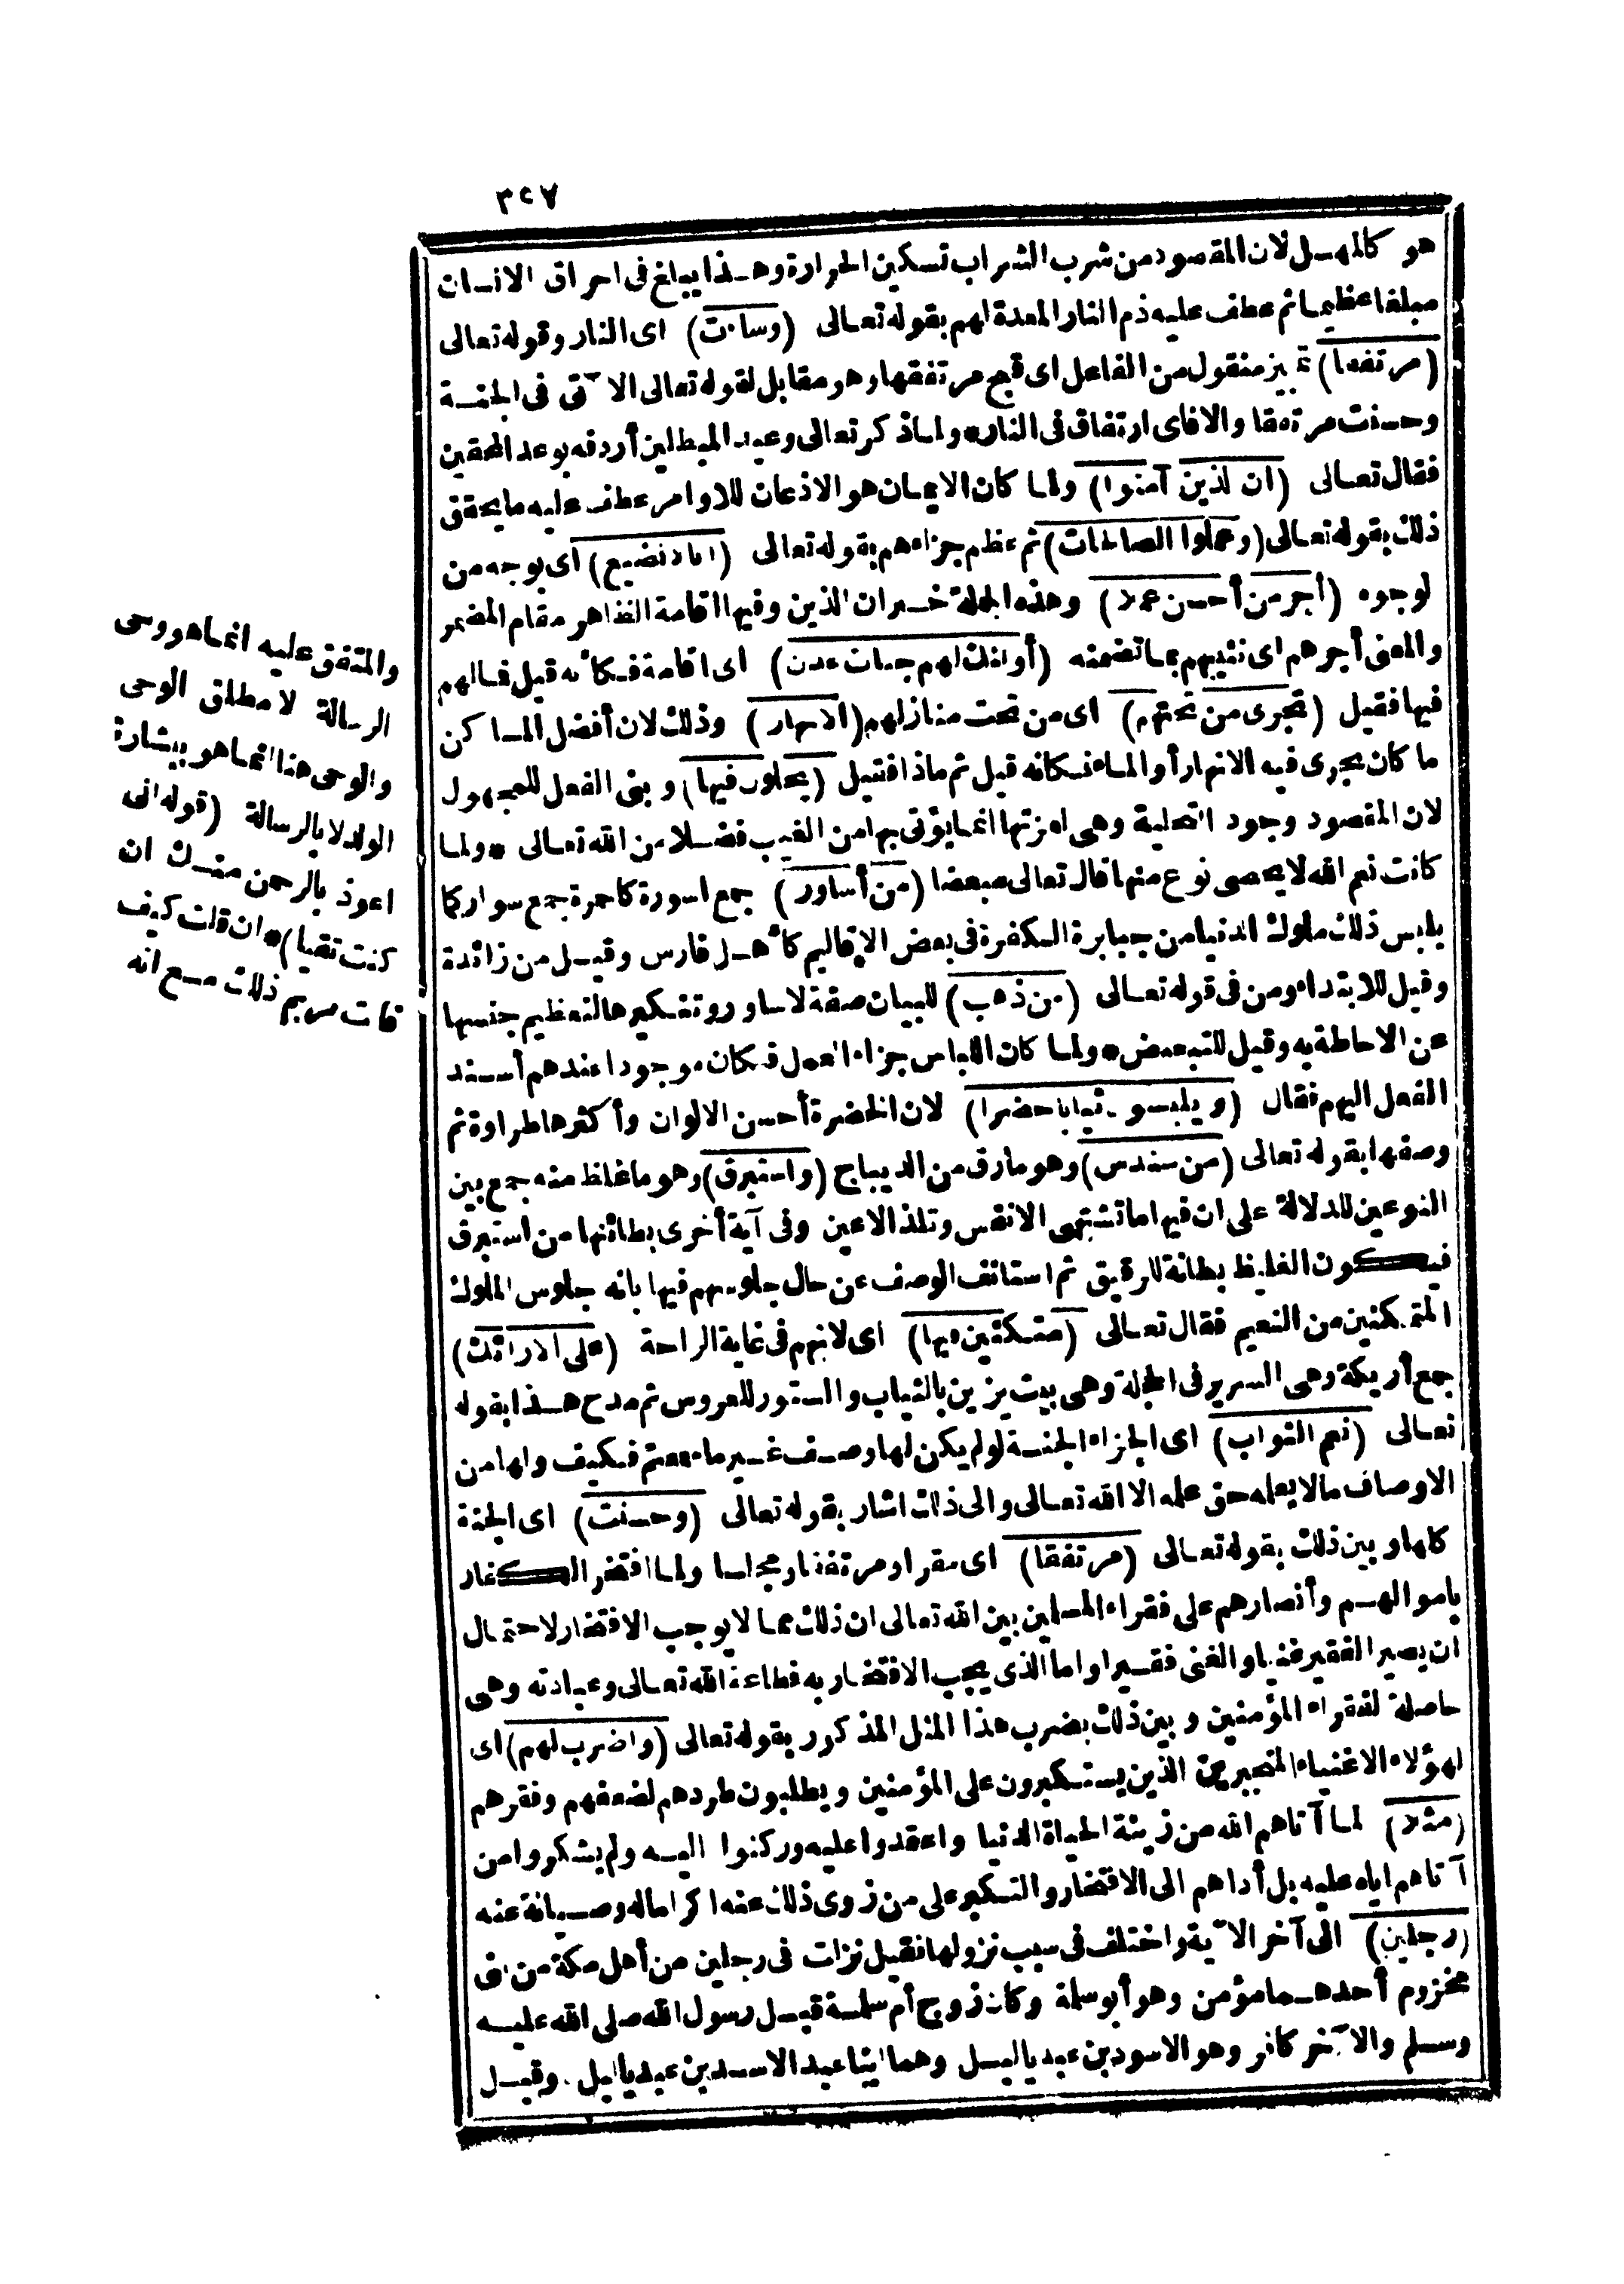 ٣٢٧
هو كالمهل لان المقصود من شرب الشراب تسكين الحرارة وهذا يبلغ فى احراق الانسان
مبلغا عظيما ثم عطف عليه ذم النار المعدة لهم بقوله تعالى (وساءت) اى النار وقوله تعالى
(مرتفقا) تمييز منقول من الفاعل اى قبح مرتفقها وهو مقابل لقوله تعالى الآتى فى الجنة
وحسنت مرتفقا والا فاى ارتفاق فى النار* ولما ذكر تعالى وعيد المبطلين أردفه بوعد المحقين
فقال تعالى (ان الذين آمنوا) ولما كان الايمان هو الاذعان للاوامر عطف عليه ما يحقق
ذلك بقوله تعالى (وعملوا الصالحات) ثم عظم جزاءهم بقوله تعالى (انا لا نضيع) اى بوجه من
الوجوه (أجر من أحسن عملا) وهذه الجملة خبر ان الذين وفيها اقامة الظاهر مقام المضمر
والمعنى أجرهم اى نثيبهم بما تضمنه (أولئك لهم جنات عدن) اى اقامة فكأنه قيل فما لهم
فيها فقيل (تجرى من تحتهم) اى من تحت منازلهم (الانهار) وذلك لان أفضل المساكن
ما كان يجرى فيه الانهار أو الماء فكانه قيل ثم ماذا فقيل (يحلون فيها) وبنى الفعل للمجهول
لان المقصود وجود التحلية وهى لعزتها انما يؤتى بها من الغيب فضلا من الله تعالى * ولما
كانت نعم الله لا يحصى نوع منها قال تعالى مبعضا (من أساور) جمع اسورة كاحمرة جمع سوار كما
يلبس ذلك ملوك الدنيا من جبابرة الكفرة فى بعض الاقاليم كأهل فارس وقيل من زائدة
وقيل للابتداء ومن فى قوله تعالى (من ذهب) للبيان صفة لاساور وتنكيرها لتعظيم جنسها
عن الاحاطة به وقيل للتبعيض* ولما كان اللباس جزاء العمل فكان موجودا عندهم أسند
الفعل اليهم فقال (ويلبسون ثيابا خضرا) لان الخضرة أحسن الالوان وأكثرها طراوة ثم
وصفها بقوله تعالى (من سندس) وهو مارق من الديباج (واستبرق) وهو ما غلظ منه جمع بين
النوعين للدلالة على ان فيها ما تشتهى الانفس وتلذ الاعين وفى آية أخرى بطائنها من استبرق
فيكون الغليظ بطانة للرقيق ثم استانف الوصف عن حال جلوسهم فيها بانه جلوس الملوك
المتمكنين من النعيم فقال تعالى (متكئين فيها) اى لانهم فى غاية الراحة (على الارائك)
جمع أريكة وهى السرير فى الحجلة وهى بيت يزين بالثياب والستور للعروس ثم مدح هذا بقوله
تعالى (نعم الثواب) اى الجزاء الجنة لو لم يكن لها وصف غير ما سمعتم فكيف ولها من
الاوصاف ما لا يعلمه حق علمه الا الله تعالى والى ذلك اشار بقوله تعالى (وحسنت) اى الجنة
كلها وبين ذلك بقوله تعالى (مرتفقا) اى مقرا ومرتفقا ومجلسا ولما افتخر الكفار
باموالهم وأنصارهم على فقراء المسلمين بين الله تعالى ان ذلك مما لا يوجب الافتخار لاحتمال
ان يصير الفقير غنيا والغنى فقيرا واما الذى يجب الافتخار به فطاعة الله تعالى وعبادته وهى
حاصلة لفقراء المؤمنين وبين ذلك بضرب هذا المثل المذكور بقوله تعالى (واضرب لهم) اى
لهؤلاء الاغنياء المتجبرين الذين يستكبرون على المؤمنين ويطلبون طردهم لضعفهم وفقرهم
(مثلا) لما آتاهم الله من زينة الحياة الدنيا واعتمدوا عليه وركنوا اليه ولم يشكروا من
آتاهم اياه عليه بل أداهم الى الافتخار والتكبر على من زوى ذلك عنه اكراما له وصيانة عنه
(رجلين) الى آخر الآية واختلف فى سبب نزولها فقيل نزلت فى رجلين من أهل مكة من بنى
مخزوم أحدهما مؤمن وهو أبو سلمة وكان زوج أم سلمة قبل رسول الله صلى الله عليه
وسلم والآخر كافر وهو الاسود بن عبد ياليل وهما ابنا عبد الاسد بن عبد ياليل. وقيل
والمتفق عليه انما هو وحى
الرسالة لا مطلق الوحى
والوحى هنا انما هو ببشارة
الولد لا بالرسالة (قوله انى
اعوذ بالرحمن منك ان
كنت تقيا)* ان قلت كيف
قالت مريم ذلك مع انه